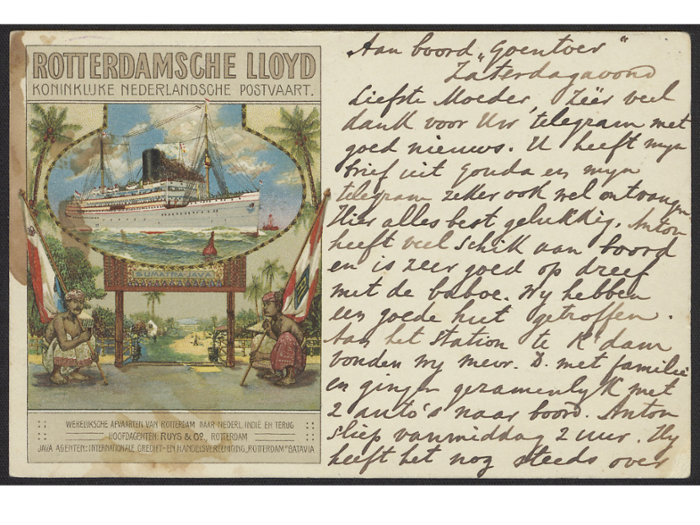 ROTTERDAMSCHE LLOYD
KONINKLIJKE NEDERLANDSCHE POSTVAART.
SUMATRA-JAVA
WEKELIJKSCHE AFVAARTEN VAN ROTTERDAM NAAR NEDERL. INDIË EN TERUG
HOOFDAGENTEN: RUYS & Co., ROTTERDAM
JAVA AGENTEN: INTERNATIONALE CREDIET- EN HANDELSVEREENIGING „ROTTERDAM" BATAVIA
Aan boord „Goentoer"
Zaterdagavond
Liefste Moeder, Zéér veel
dank voor Uw telegram met
goed nieuws. U heeft myn
brief uit Gouda en myn
telegram zeker ook wel ontvangen
Hier alles best gelukkig. Anton
heeft veel schik aan boord
en is zeer goed op dreef
met de baboe. Wy hebben
een goede hut getroffen.
Aan het station te R'dam
vonden wy mevr. D. met familie
en gingen gezamenlyk met
2 auto's naar boord. Anton
sliep vanmiddag 2 uur. Hy
heeft het nog steeds over